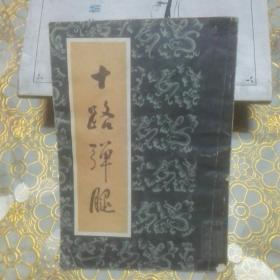 十路弹腿